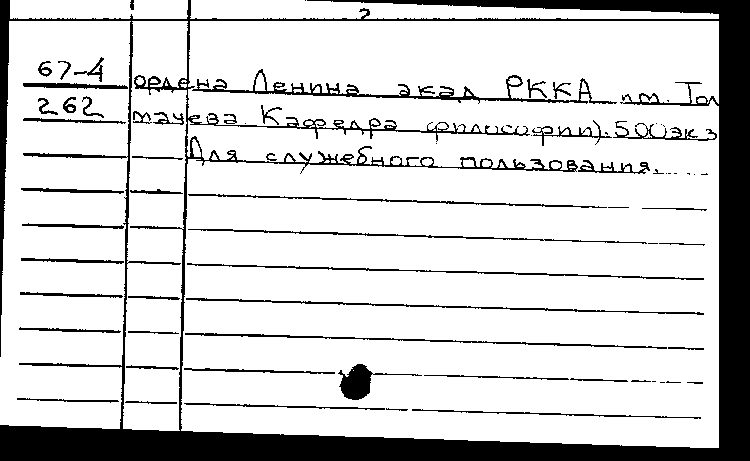 2
67-4 ордена Ленина акад РККА им. Тол
262 мачева Кафедра философии). 500 экз
Для служебного пользования.